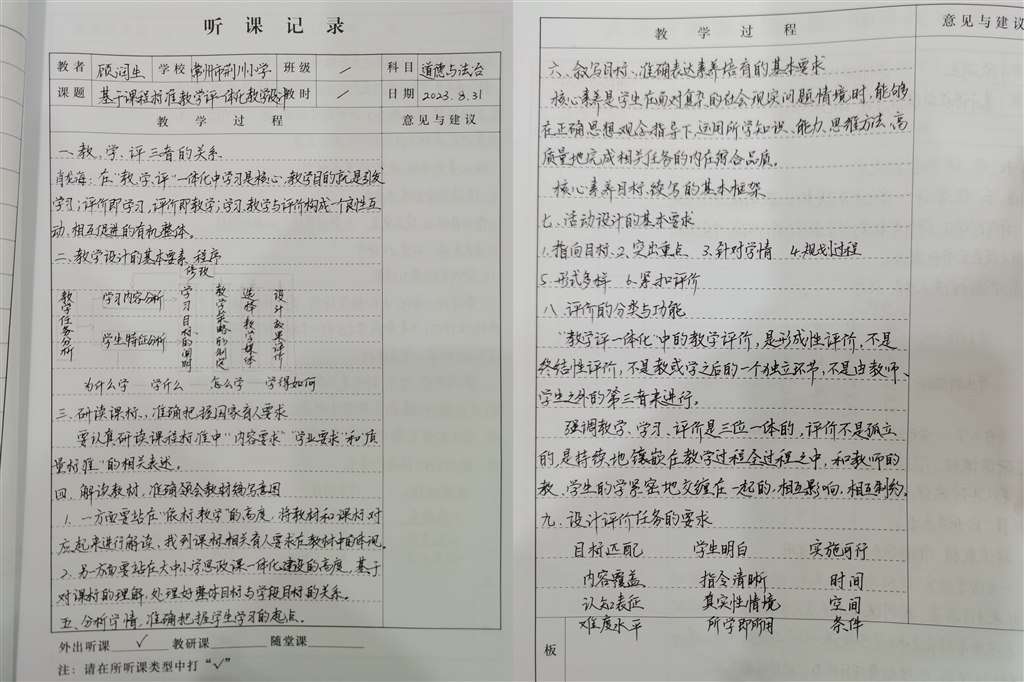 听课记录
教者 顾润生 学校 常州市荆川小学 班级 / 科目 道德与法治
课题 基于课程标准教学评一体化教学设计 教时 / 日期 2023.8.31
教学过程 意见与建议
一、教、学、评三者的关系
肖龙海：在“教学评”一体化中学习是核心，教学目的就是引发
学习；评价即学习，评价即教学；学习、教学与评价构成一个良性互
动、相互促进的有机整体。
二、教学设计的基本要素、程序
修改
教学任务分析
学习内容分析
学生特征分析
学习目标的阐明
教学策略的制定
选择教学媒体
设计效果评价
为什么学 — 学什么 — 怎么学 — 学得如何
三、研读课标，准确把握国家育人要求
要认真研读课程标准中“内容要求”“学业要求”和“质
量标准”的相关表述。
四、解读教材，准确领会教材编写意图
1. 一方面要站在“依标教学”的高度，将教材和课标对
应起来进行解读，找到课标相关育人要求在教材中的体现。
2. 另一方面要站在大中小学思政课一体化建设的高度，基于
对课标的理解，处理好整体目标与学段目标的关系。
五、分析学情，准确把握学生学习的起点。
外出听课 √ 教研课 随堂课
注：请在所听课类型中打“√”
教学过程 意见与建议
六、叙写目标，准确表达素养培育的基本要求
核心素养是学生在面对复杂的社会现实问题情境时，能够
在正确思想观念指导下，运用所学知识、能力、思维方法，高
质量地完成相关任务的内在综合品质。
核心素养目标叙写的基本框架
七、活动设计的基本要求
1.指向目标 2.突出重点 3.针对学情 4.规划过程
5.形式多样 6.紧扣评价
八、评价的分类与功能
“教学评一体化”中的教学评价，是形成性评价，不是
终结性评价，不是教或学之后的一个独立环节，不是由教师、
学生之外的第三者来进行。
强调教学、学习、评价是三位一体的，评价不是孤立
的，是持续地镶嵌在教学过程全过程之中，和教师的
教、学生的学紧密地交缠在一起的，相互影响，相互制约。
九、设计评价任务的要求
目标匹配 学生明白 实施可行
内容覆盖 指令清晰 时间
认知表征 真实性情境 空间
难度水平 所学即所用 条件
板